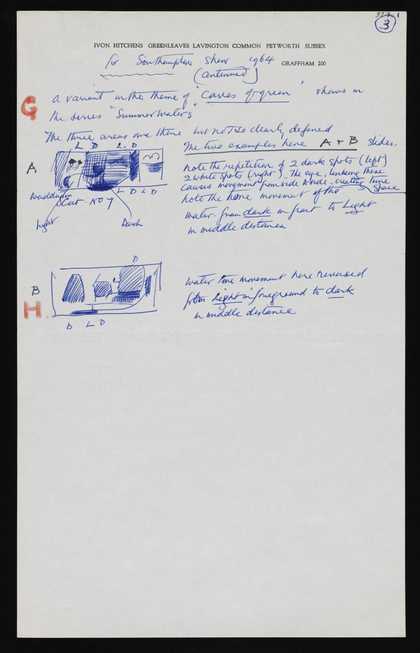 3
IVON HITCHENS GREENLEAVES LAVINGTON COMMON PETWORTH SUSSEX
for Southampton Show 1964
(continued)
GRAFFHAM 200
G
a variant on the theme of "Caves of green" shown in
the series "Summer Waters"
The three areas are there but not so clearly defined
The two examples here A + B slides.
L D L D
A
note the repetition of 2 dark spots (left)
2 white spots (right). The eye, linking these
causes movement from side to side - creating time
Space
Note the tone movement of the
L D L D
Boat No 7
light
Dark
water from dark in front to Light
in middle distance
D
B
L
H
water tone movement here reversed
from Light in foreground to dark
in middle distance
D L D